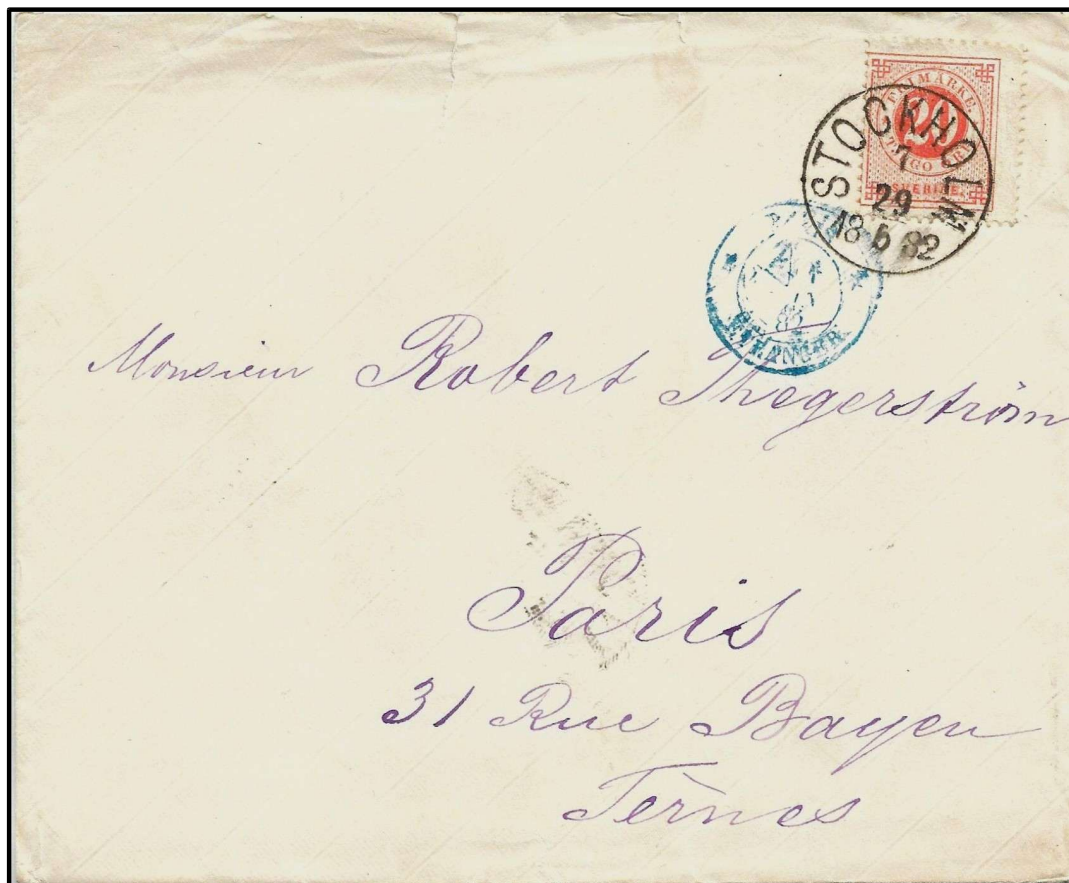 FRIMÄRKE.
20
TJUGO
SVERIGE.
STOCKHOLM
1
29
18 5 82
ETRANGER
Monsieur Robert Thegerström
Paris
31 Rue Bayen
Tèrnes